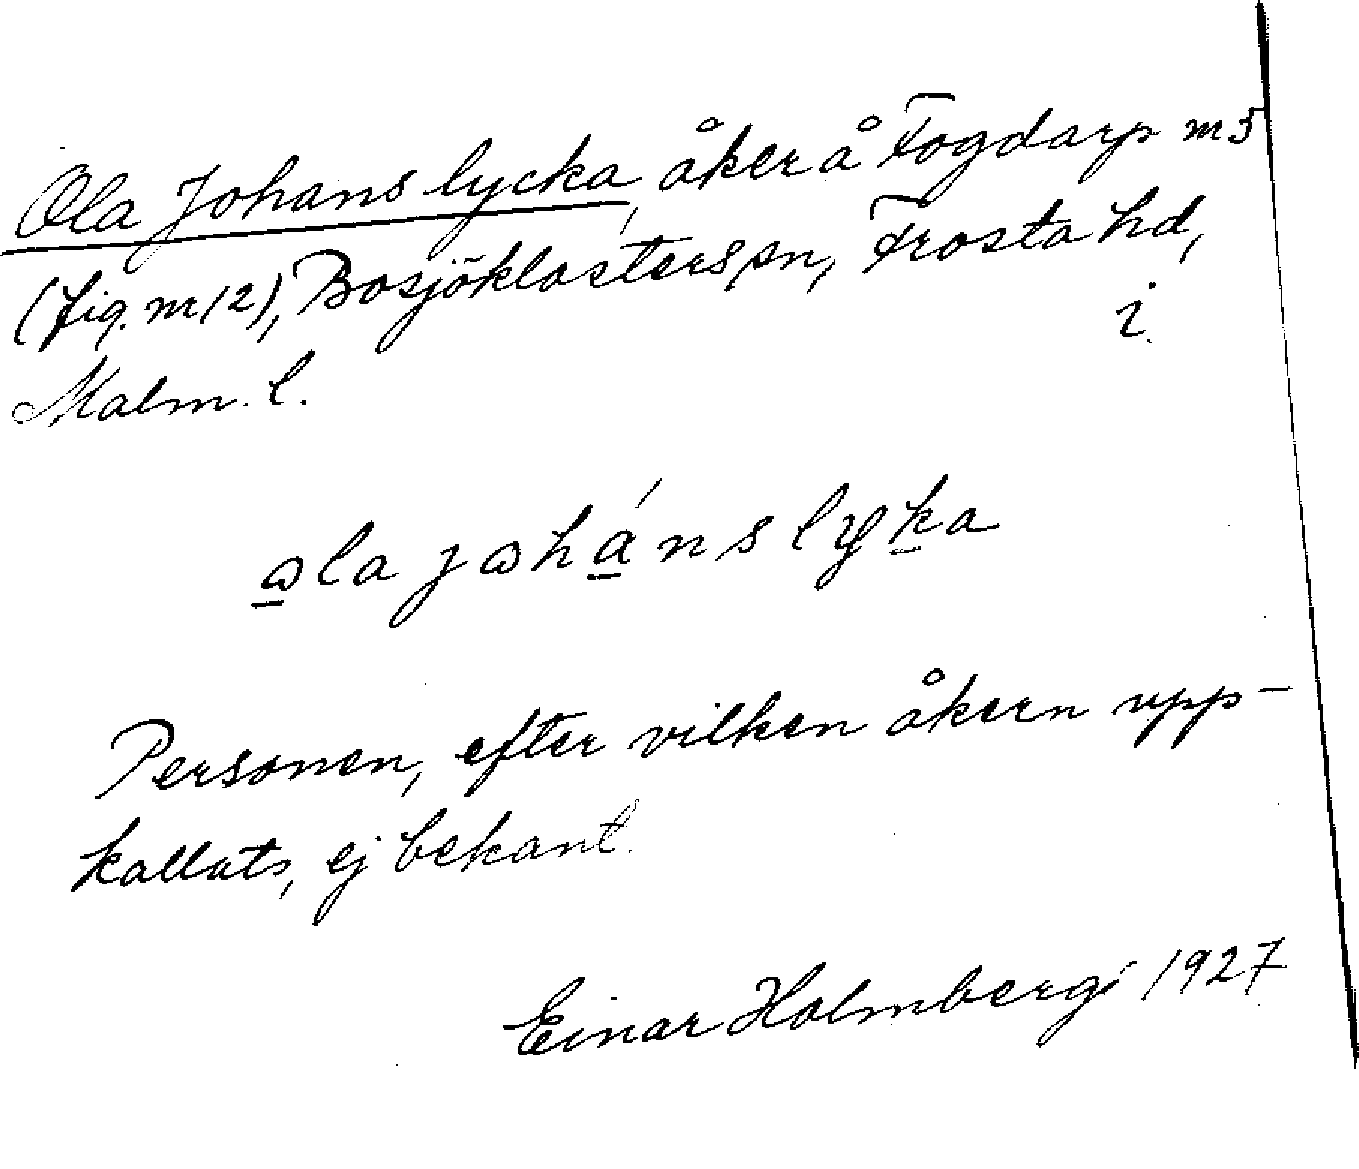 Ola Johans lycka, åker å Fogdarp nr 5
(fig. nr 12), Bosjöklosters sn, Frosta hd,
i
Malm. l.
ola johánslyka
Personen, efter vilken åkern upp-
kallats, ej bekant.
Einar Holmberg 1927